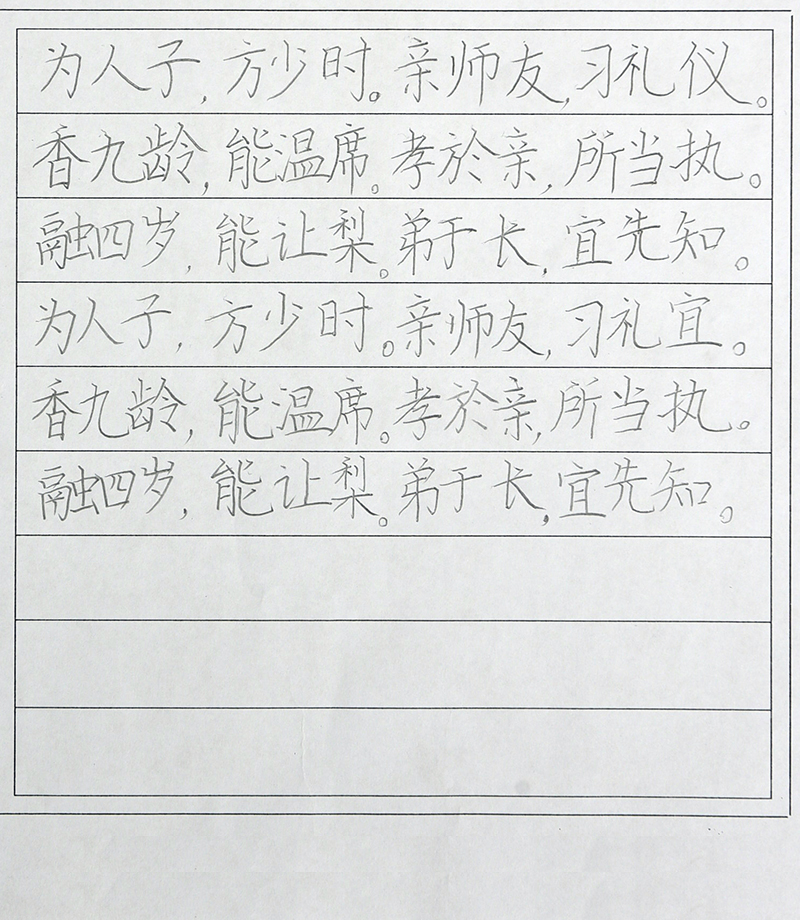 为人子,方少时。亲师友,习礼仪。
香九龄,能温席。孝於亲,所当执。
融四岁,能让梨。弟于长,宜先知。
为人子,方少时。亲师友,习礼宜。
香九龄,能温席。孝於亲,所当执。
融四岁,能让梨。弟于长,宜先知。